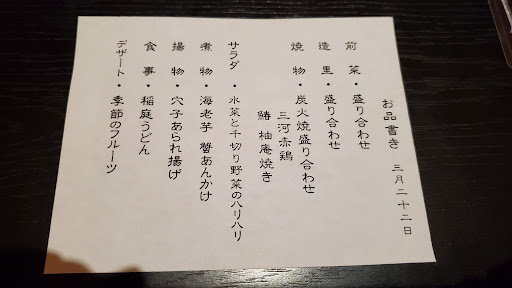 お品書き 三月二十二日
前菜・盛り合わせ
造里・盛り合わせ
焼物・炭火焼盛り合わせ
三河赤鶏
鰆 柚庵焼き
サラダ・水菜と千切り野菜のハリハリ
煮物・海老芋 蟹あんかけ
揚物・穴子あられ揚げ
食事・稲庭うどん
デザート・季節のフルーツ